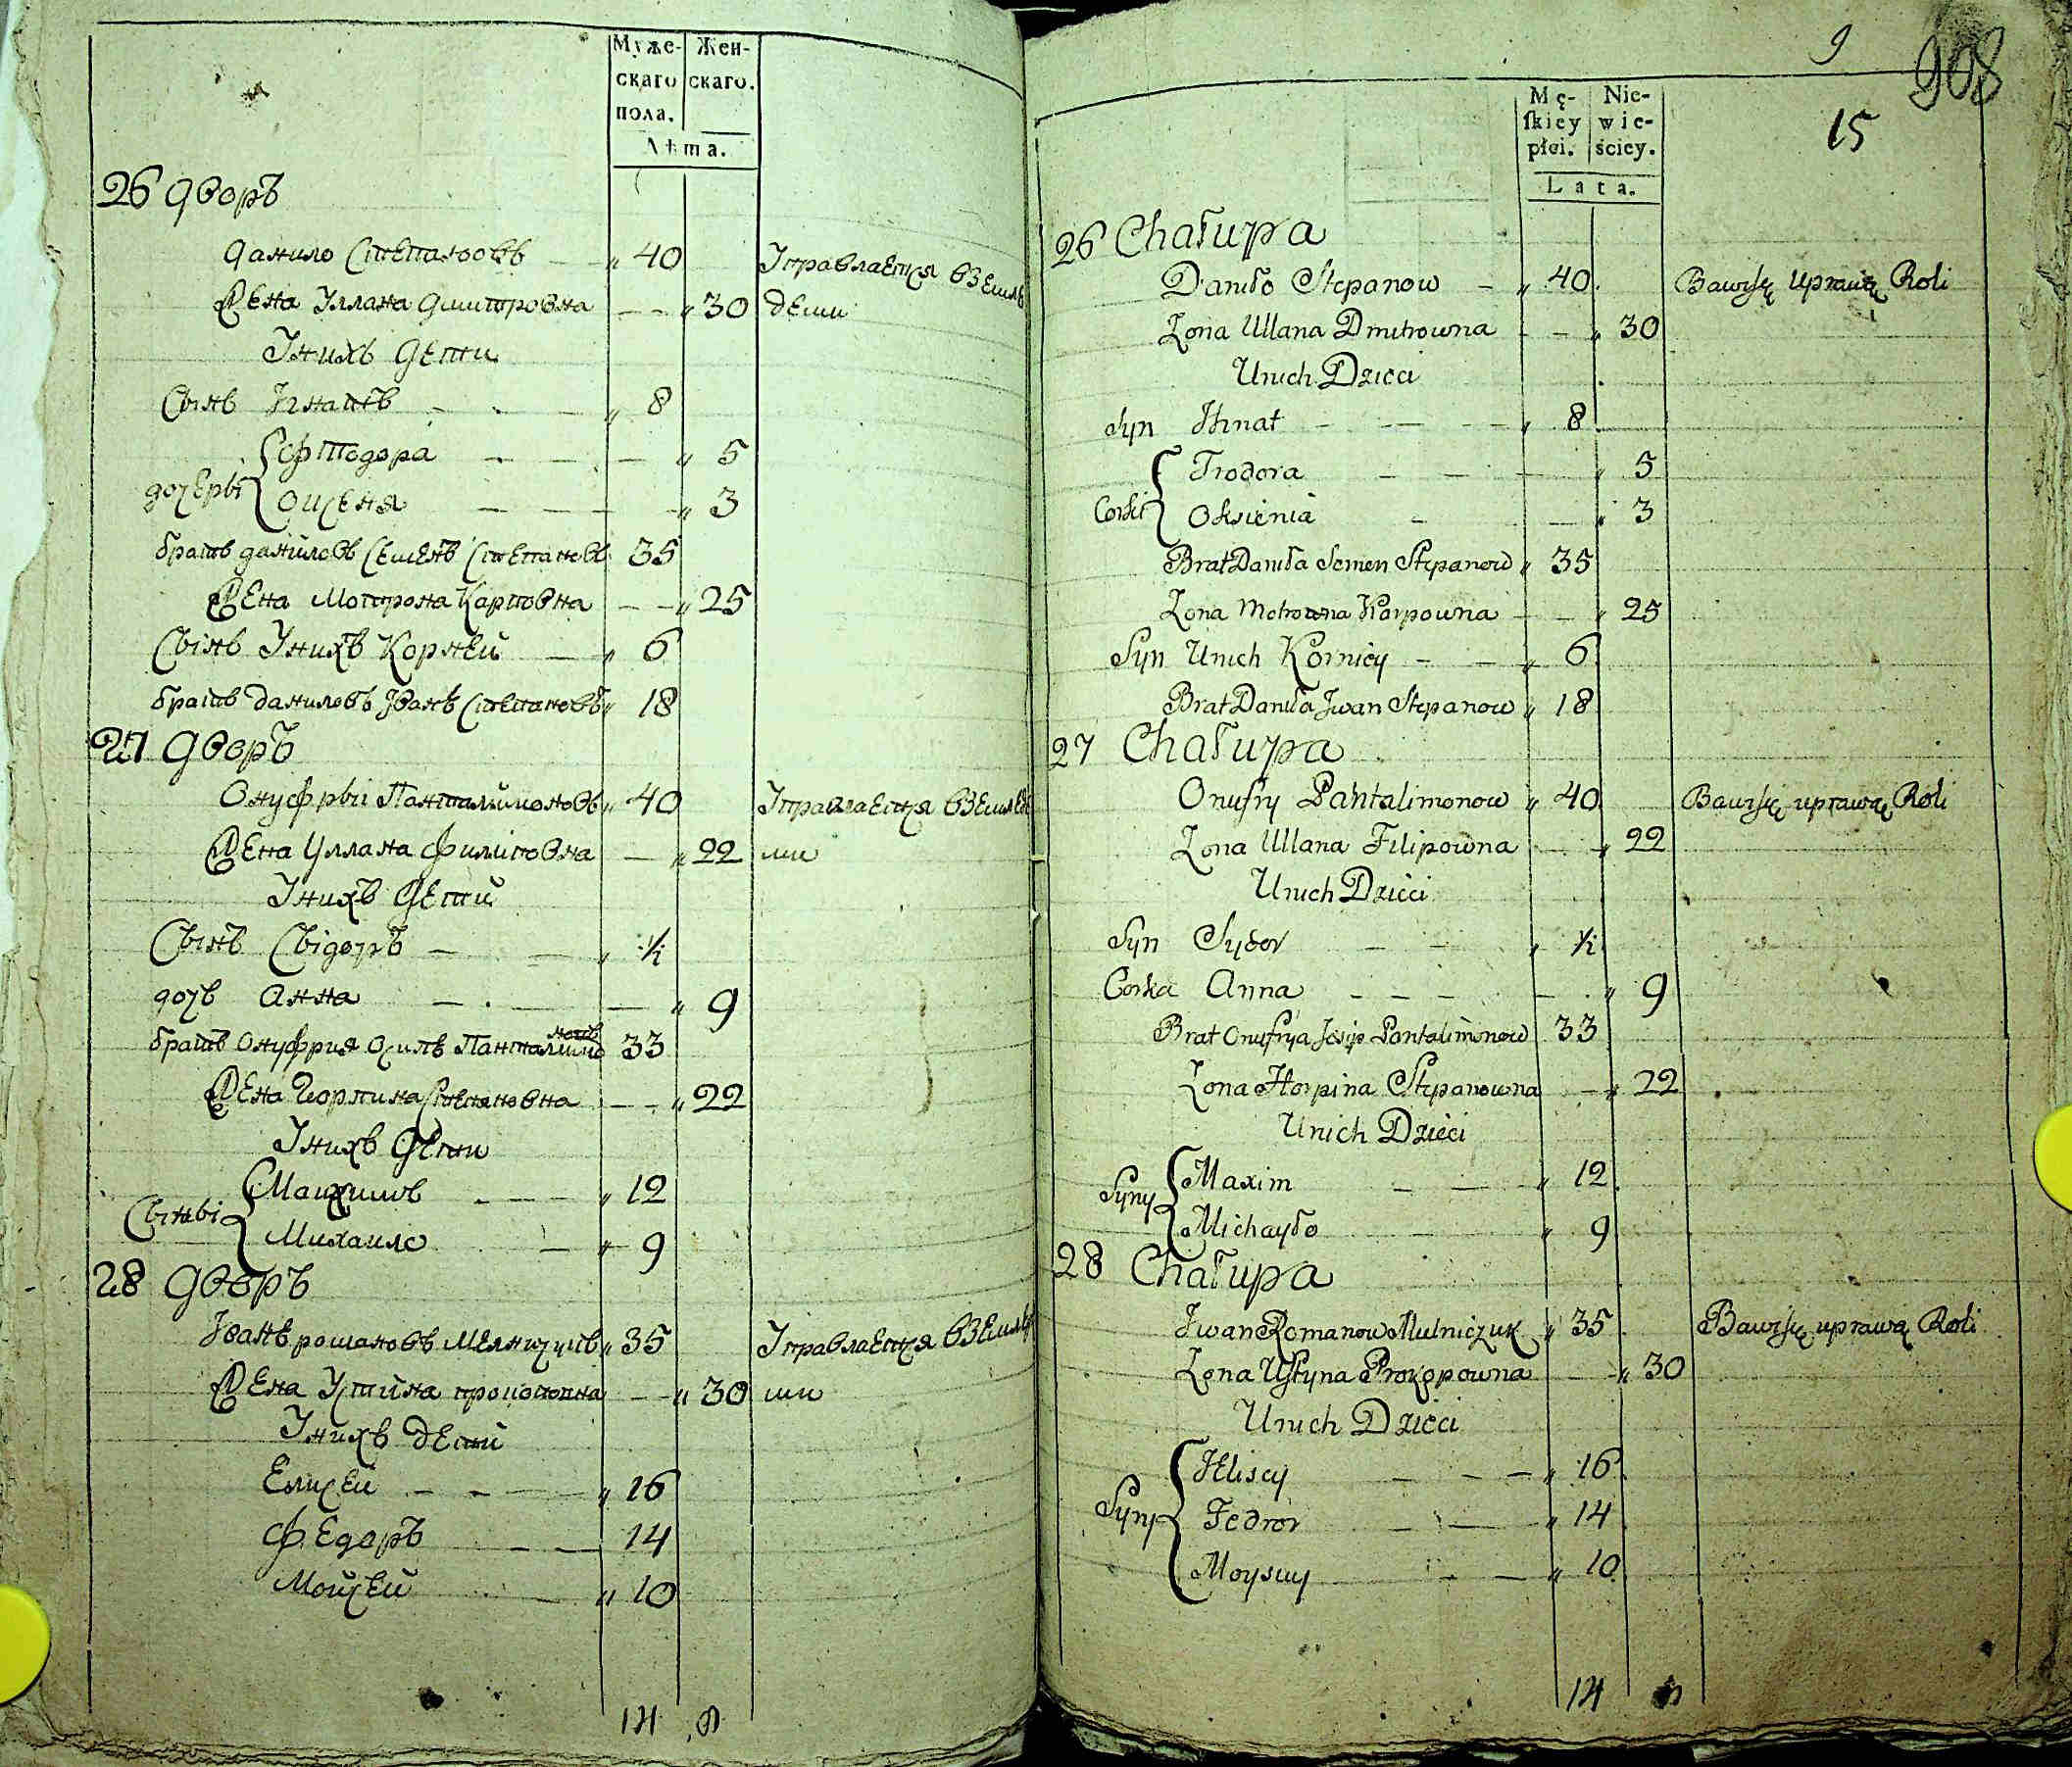 Муже- Жен-
скаго скаго.
пола.
Лѣта.
26 дворъ
Данило Степановъ — „ 40 Управляется вземлѣ
Жена Уллана Дмитровна — „ 30 дели
Унихъ Дети
Сынъ Игнатъ — „ 8
Фтодора — „ 5
дочерьі
Оксеня — „ 3
братъ даниловъ Семенъ Степановъ 35
Жена Мотрона Карповна — „ 25
Сынъ Унихъ Корней — „ 6
братъ даниловъ Іванъ Степановъ „ 18
27 дворъ
Онуфрьи Панталимоновъ „ 40 Управлается вземледе
Жена Уллана Филиповна — „ 22 ли
Унихъ Дети
Сынъ Сыдоръ — „ ½
дочъ Анна — „ 9
братъ Онуфрия Осипъ Панталимо 33
новъ
Жена Горпина Степановна — „ 22
Унихъ Дети
Максимъ — „ 12
Сыньі
Михаило — „ 9
28 дворъ
Іванъ романовъ Мелничукъ „ 35 Управлается вземледе
Жена Устина прокоповна — „ 30 ли
Унихъ дети
Елисеи — „ 16
Федоръ — 14
Мойсей — „ 10
14 9
9 908
15
Mę- Nie-
ſkiey wie-
płci. ściey.
Lata.
26 Chałupa
Daniło Stepanow — „ 40 Bawi się uprawą Roli
Zona Ullana Dmitrowna — „ 30
U nich Dzieci
Syn Ihnat — „ 8
Tiodora — „ 5
Corki
Oksienia — „ 3
Brat Daniła Semen Stepanow „ 35
Zona Motrowna Karpowna — „ 25
Syn U nich Korniey — „ 6
Brat Daniła Jwan Stepanow „ 18
27 Chałupa
Onufry Pantalimonow „ 40 Bawi się uprawą Roli
Zona Ullana Filipowna — „ 22
U nich Dzieci
Syn Sydor — „ ½
Corka Anna — „ 9
Brat Onufrya Josip Pantalimonow 33
Zona Horpina Stepanowna — „ 22
U nich Dzieci
Maxim — „ 12
Syny
Michayło — „ 9
28 Chałupa
Jwan Romanow Mielniczuk „ 35 Bawi się uprawą Roli
Zona Ustyna Prokopowna — „ 30
U nich Dzieci
Jelisey — „ 16
Syny Fedor — „ 14
Moysiey — „ 10
14 9